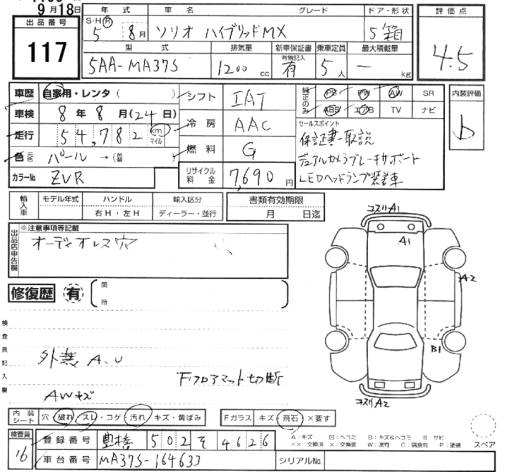 9月18日
出品番号 117
年式 車名 グレード ドア・形状
S・H・R 5年 8月 ソリオ ハイブリッドMX 5 箱
評価点 4.5
型式 排気量 新車保証書 乗車定員 最大積載量
5AA-MA37S 1200cc 有無記入 有 5人 - kg
車歴 自家用・レンタ( )
車検 8年 8月(24日)
走行 54,782 km マイル
色 パール → (替
カラーNo ZVR
シフト IAT
冷房 AAC
燃料 G
リサイクル料金 7,690円
純正のみ ABS PS PW AW SR
エアB TV ナビ
セールスポイント
保証書・取説
デュアルカメラブレーキサポート
LEDヘッドランプ装着車
内装評価 b
輸入車 モデル年式 ハンドル 輸入区分 書類有効期限
年 右H・左H ディーラー・並行 月 日迄
出品店申告欄
※注意事項等記載
オーディオレス穴
修復歴 有
箇所
検査員記入欄
外無 A.U
AWキズ
Fフロアマット切断
コスリA1
A1
A2
B1
コスリA2
内装シート 穴 破れ スレ・コゲ 汚れ キズ・黄ばみ Fガラス キズ・飛石 ×要す
スペア
検査員 16
登録番号 豊橋 502 そ 4626
車台番号 MA37S-164633 シリアルNo